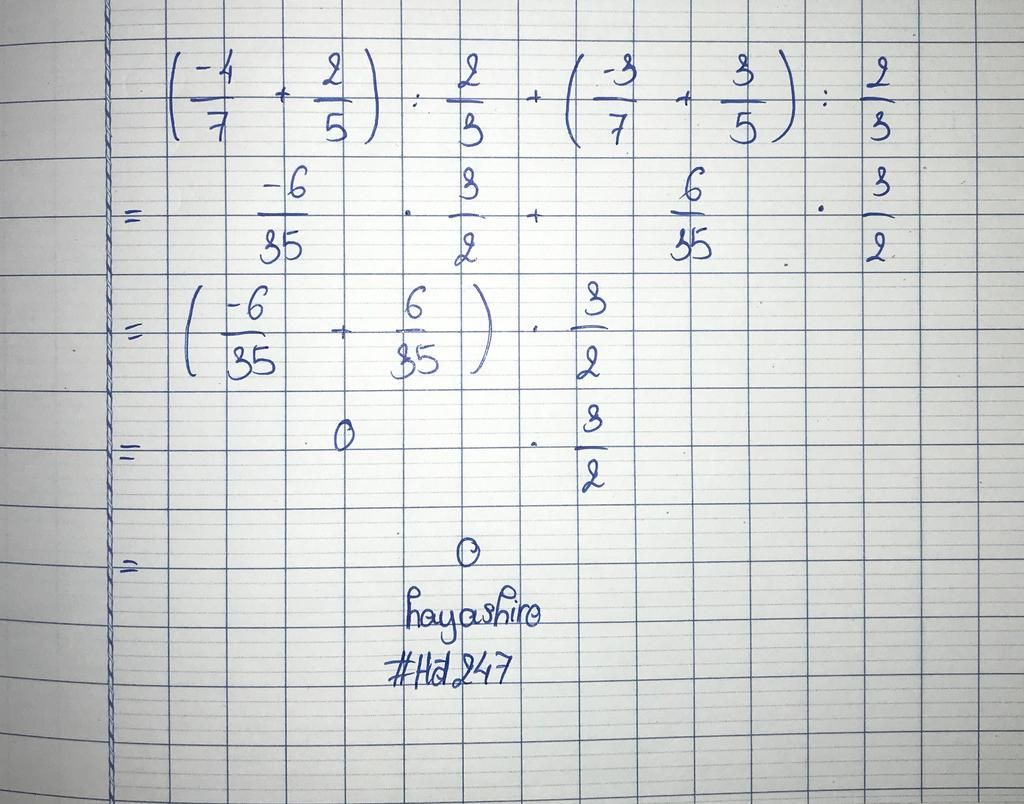 (-4/7 + 2/5) : 2/3 + (-3/7 + 3/5) : 2/3
= -6/35 . 3/2 + 6/35 . 3/2
= (-6/35 + 6/35) . 3/2
= 0 . 3/2
= 0
hayashiro